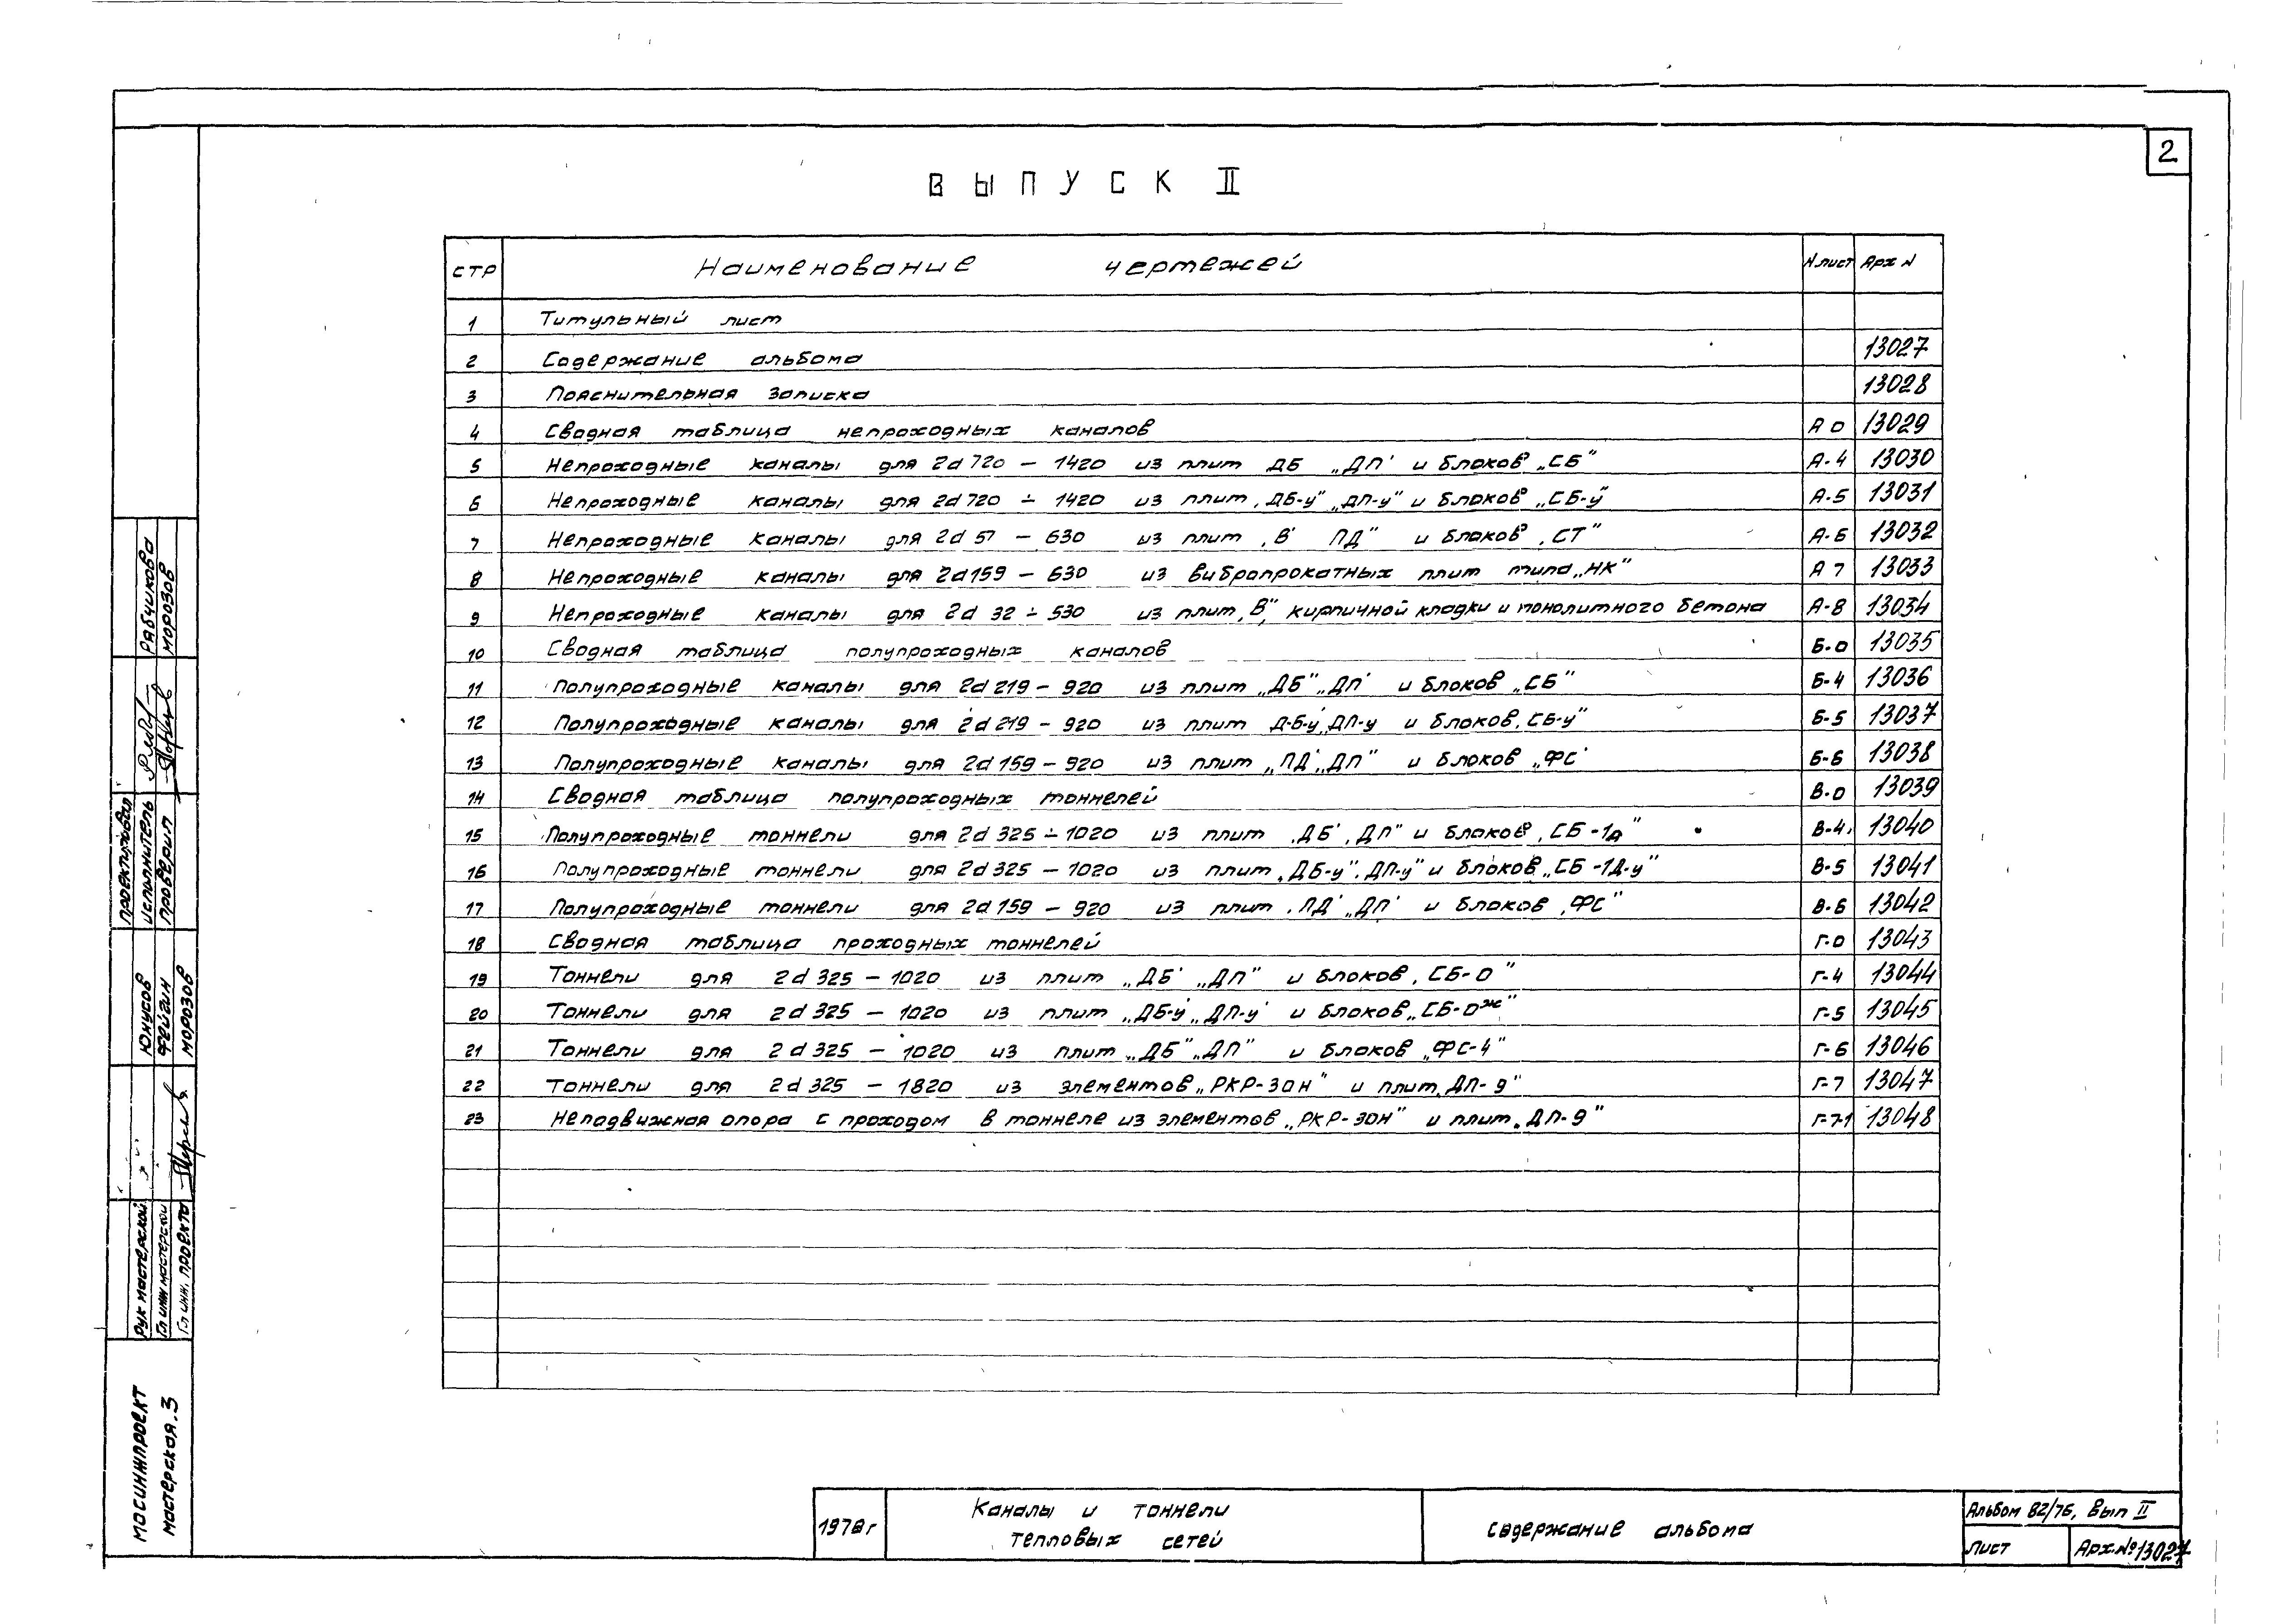 2
ВЫПУСК II
СТР Наименование чертежей N лист Арх N
1 Титульный лист
2 Содержание альбома 13027
3 Пояснительная записка 13028
4 Сводная таблица непроходных каналов А 0 13029
5 Непроходные каналы для 2d 720 – 1420 из плит ДБ „ДП' и блоков „СБ" А-4 13030
6 Непроходные каналы для 2d 720 ÷ 1420 из плит „ДБ-у" „ДП-у" и блоков „СБ-у" А-5 13031
7 Непроходные каналы для 2d 57 – 630 из плит „В' ПД" и блоков „СТ" А-6 13032
8 Непроходные каналы для 2d 159 – 630 из вибропрокатных плит типа „НК" А 7 13033
9 Непроходные каналы для 2d 32 ÷ 530 из плит „В", кирпичной кладки и монолитного бетона А-8 13034
10 Сводная таблица полупроходных каналов Б-0 13035
11 Полупроходные каналы для 2d 219 – 920 из плит „ДБ" „ДП' и блоков „СБ" Б-4 13036
12 Полупроходные каналы для 2d 219 – 920 из плит ДБ-у, ДП-у и блоков „СБ-у" Б-5 13037
13 Полупроходные каналы для 2d 159 – 920 из плит „ПД' „ДП" и блоков „ФС' Б-6 13038
14 Сводная таблица полупроходных тоннелей В-0 13039
15 Полупроходные тоннели для 2d 325 ÷ 1020 из плит „ДБ' „ДП" и блоков „СБ-1д" В-4 13040
16 Полупроходные тоннели для 2d 325 – 1020 из плит „ДБ-у" „ДП-у" и блоков „СБ-1Д-у" В-5 13041
17 Полупроходные тоннели для 2d 159 – 920 из плит „ПД' „ДП' и блоков „ФС" В-6 13042
18 Сводная таблица проходных тоннелей Г-0 13043
19 Тоннели для 2d 325 – 1020 из плит „ДБ' „ДП" и блоков „СБ-0" Г-4 13044
20 Тоннели для 2d 325 – 1020 из плит „ДБ-у' „ДП-у' и блоков „СБ-0ж" Г-5 13045
21 Тоннели для 2d 325 – 1020 из плит „ДБ" „ДП" и блоков „ФС-4" Г-6 13046
22 Тоннели для 2d 325 – 1820 из элементов „РКР-30Н" и плит „ДП-9" Г-7 13047
23 Неподвижная опора с проходом в тоннеле из элементов „РКР-30Н" и плит „ДП-9" Г-7-1 13048
проектировал
исполнитель Рябчикова
проверил Морозов
Рук мастерской Юнусов
Гл инж мастерской Фейгин
Гл инж. проекта Морозов
МОСИНЖПРОЕКТ
мастерская.3
1978г
Каналы и тоннели
тепловых сетей
содержание альбома
Альбом 82/76, Вып II
Лист
Арх.№ 13027